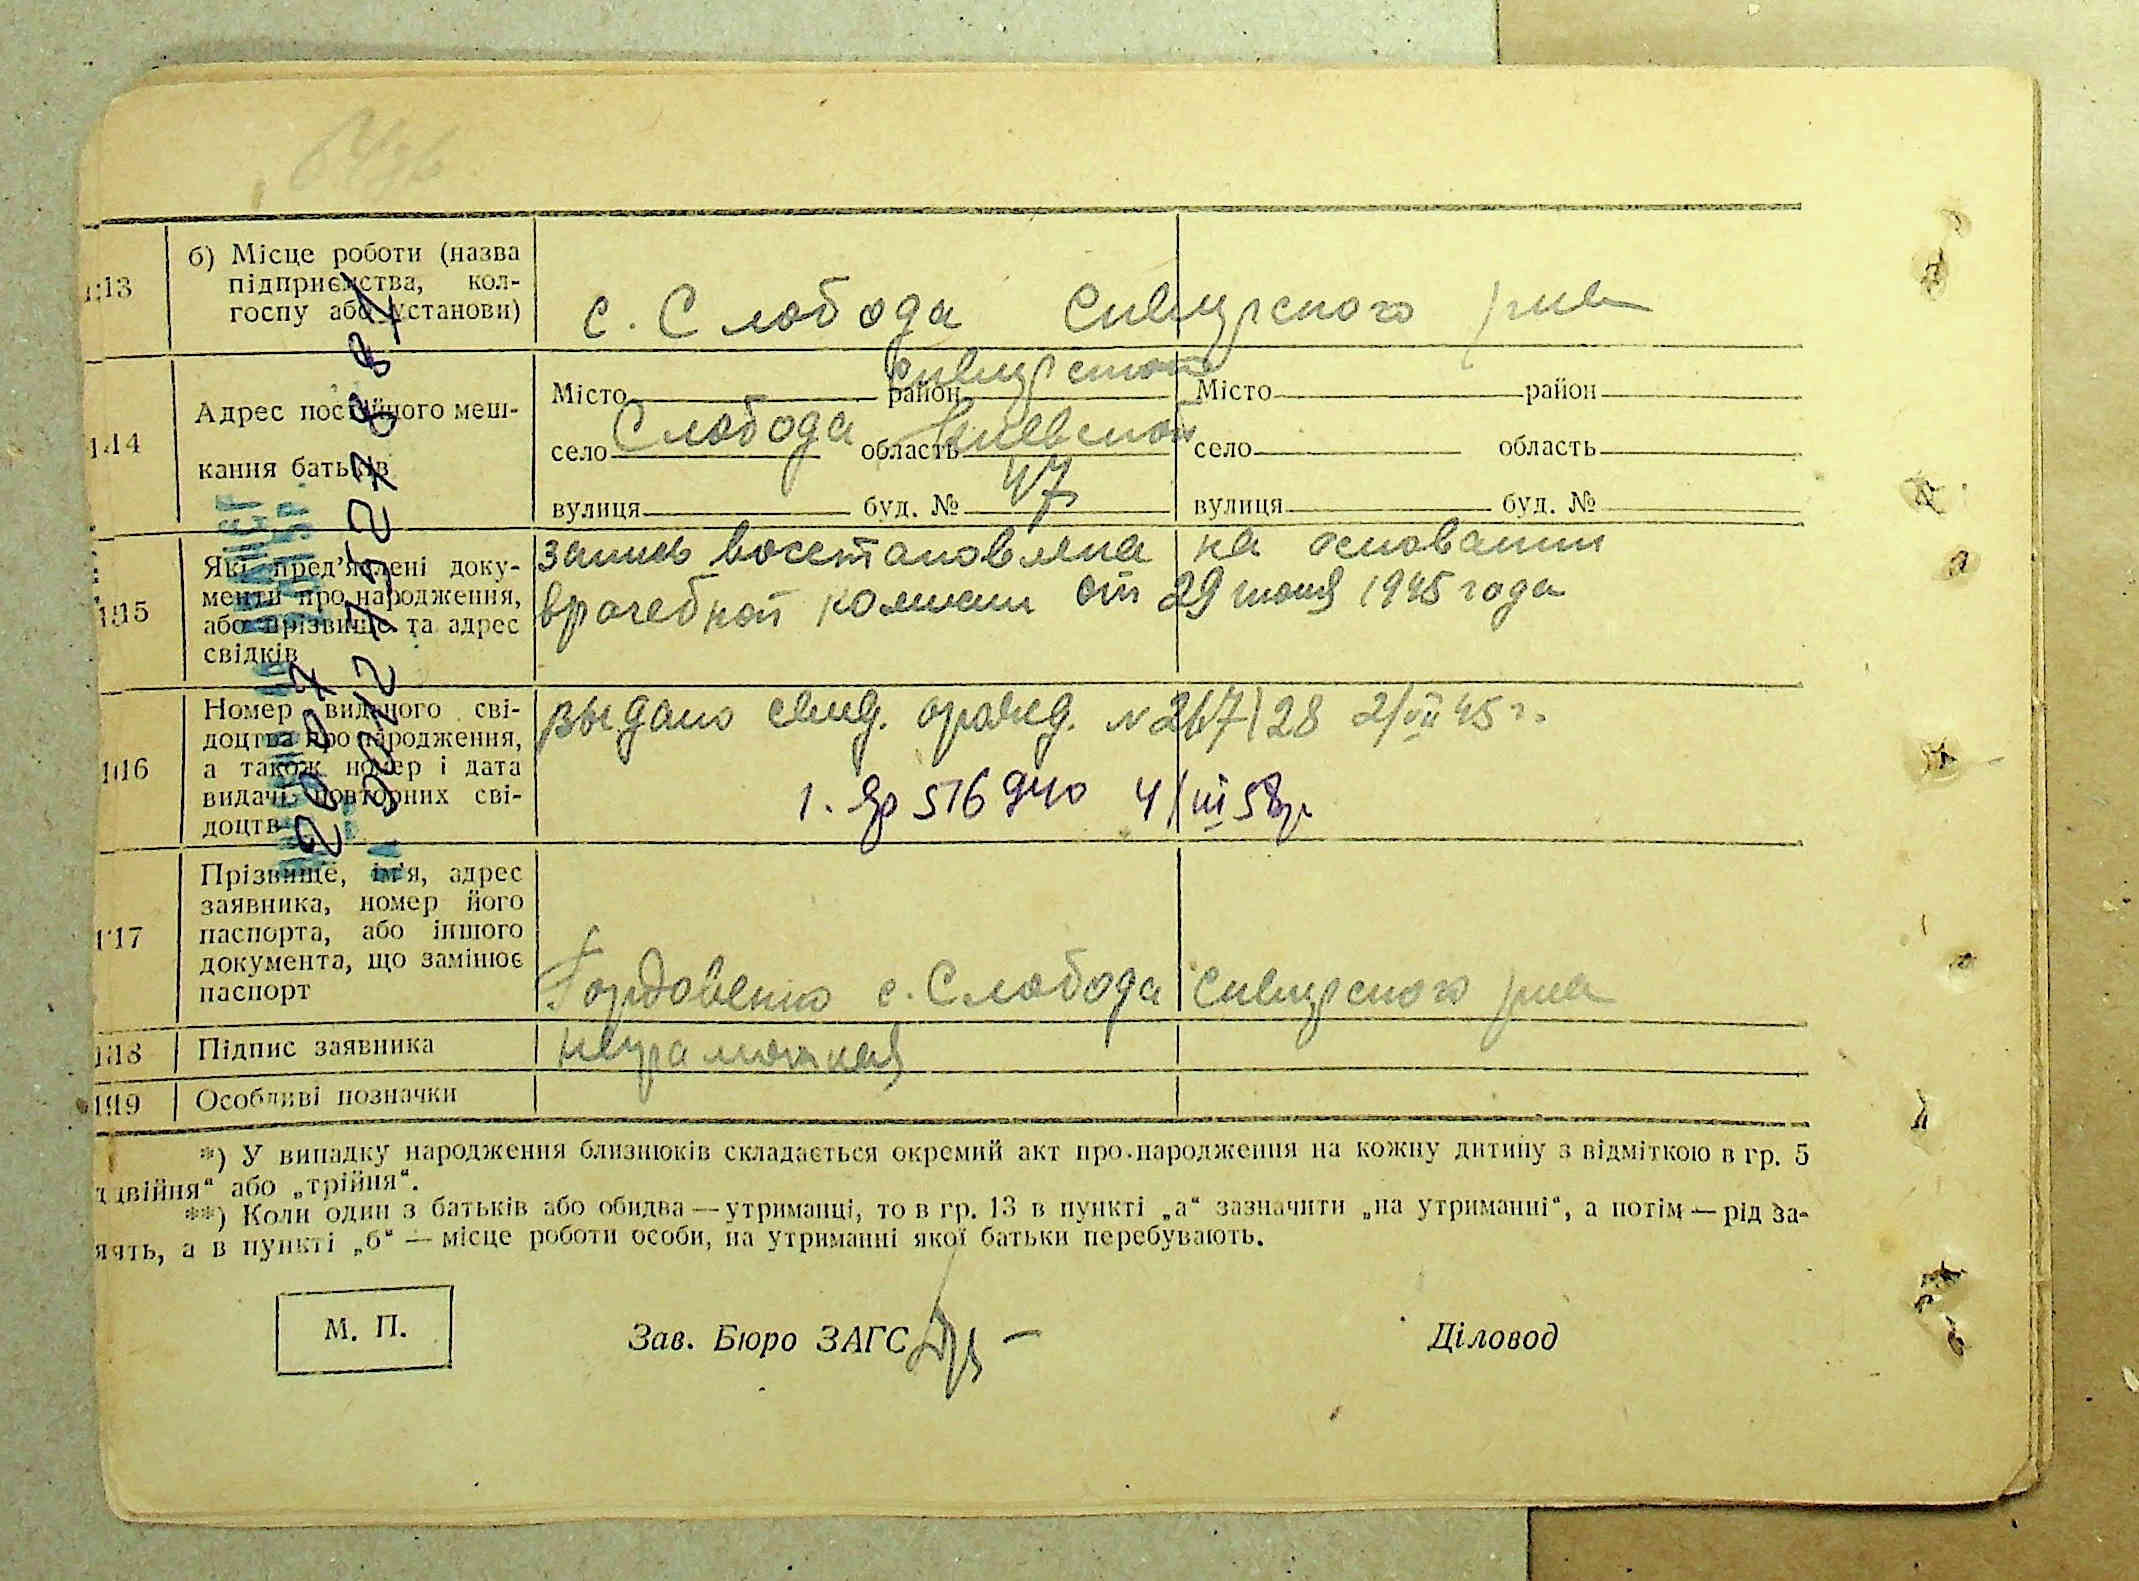 13
б) Місце роботи (назва
підприємства, кол-
госпу або установи)
с. Слобода
14
Адрес постійного меш-
кання батьків
Місто район Місто район
село Слобода область село область
вулиця буд. № 47 вулиця буд. №
15
Які пред'явлені доку-
менти про народження,
або прізвище та адрес
свідків
запись восстановлена на основании
врачебной комиссии от 29 июня 1945 года
16
Номер виданого сві-
доцтва про народження,
а також номер і дата
видачі повторних сві-
доцтв
выдано свид. №
4/III 58г.
17
Прізвище, ім'я, адрес
заявника, номер його
паспорта, або іншого
документа, що замінює
паспорт
с. Слобода
18
Підпис заявника
неграмотная
19
Особливі позначки
*) У випадку народження близнюків складається окремий акт про народження на кожну дитину з відміткою в гр. 5
двійня" або „трійня".
**) Коли один з батьків або обидва — утриманці, то в гр. 13 в пункті „а" зазначити „на утриманні", а потім — рід за-
нять, а в пункті „б" — місце роботи особи, на утриманні якої батьки перебувають.
М. П.
Зав. Бюро ЗАГС
Діловод